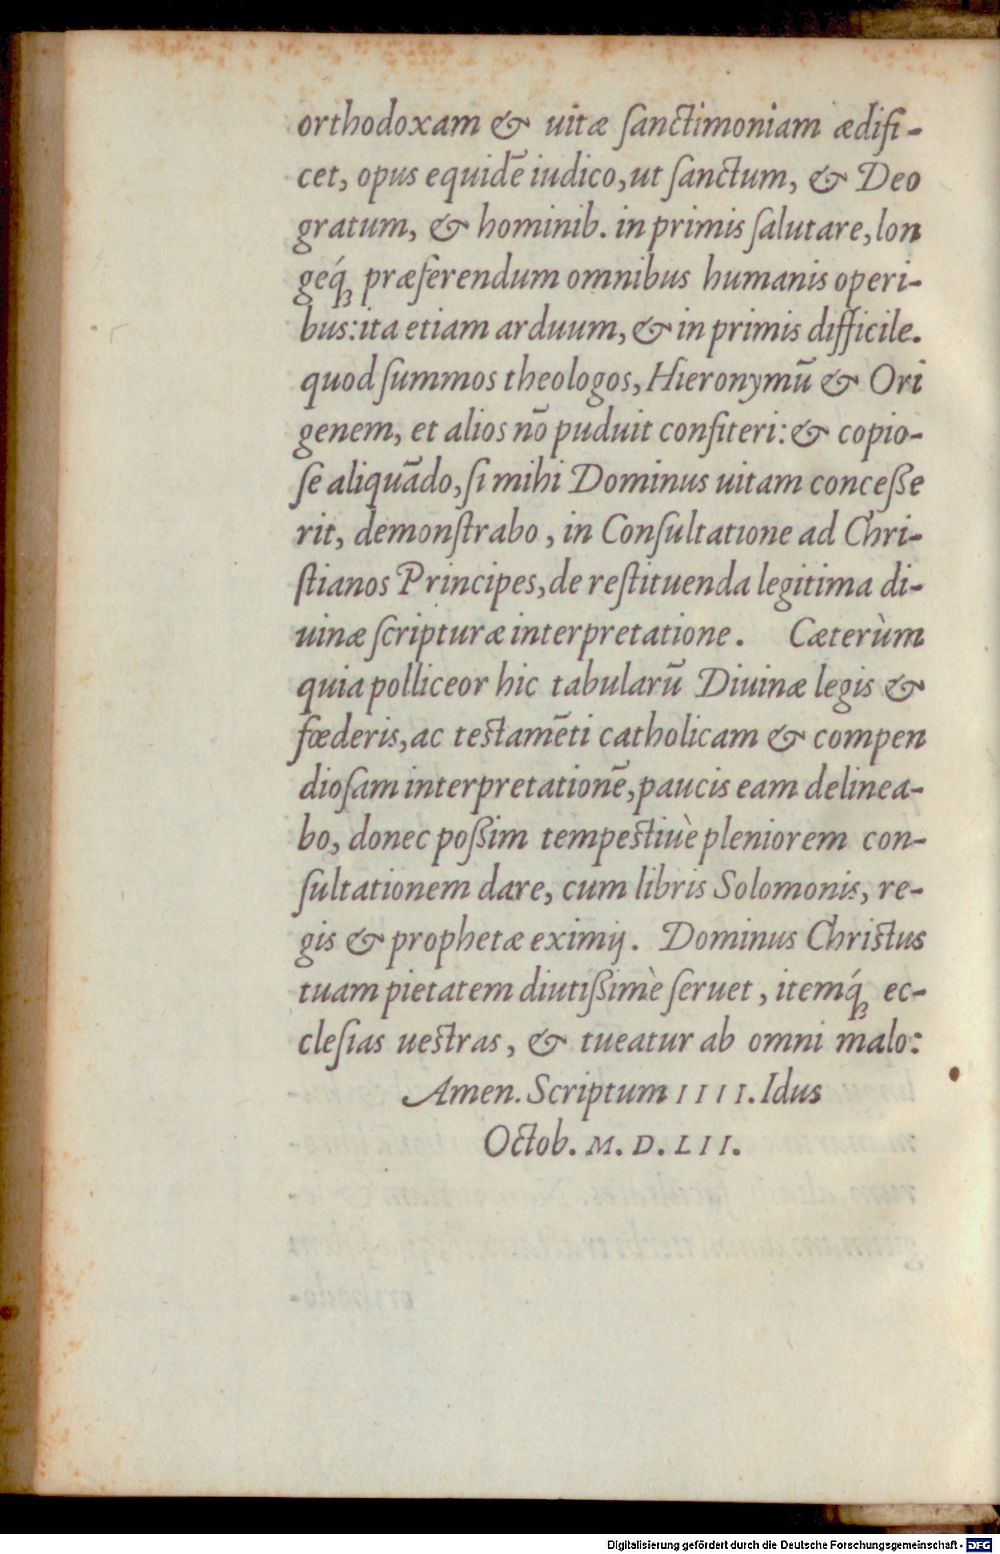 orthodoxam & uitæ ſanctimoniam ædifi-
cet, opus equidẽ iudico, ut ſanctum, & Deo
gratum, & hominib. in primis ſalutare, lon
geq́ꝫ præferendum omnibus humanis operi-
bus: ita etiam arduum, & in primis difficile.
quod ſummos theologos, Hieronymũ & Ori
genem, et alios nõ puduit confiteri: & copio-
ſe aliquãdo, ſi mihi Dominus uitam conceſſe
rit, demonſtrabo, in Conſultatione ad Chri-
ſtianos Principes, de reſtituenda legitima di-
uinæ ſcripturæ interpretatione. Cæterùm
quia polliceor hic tabularũ Diuinæ legis &
fœderis, ac testamẽti catholicam & compen
dioſam interpretationẽ, paucis eam delinea-
bo, donec poſſim tempestiuè pleniorem con-
ſultationem dare, cum libris Solomonis, re-
gis & prophetæ eximij. Dominus Christus
tuam pietatem diutiſſimè ſeruet, itemq́ꝫ ec-
cleſias uestras, & tueatur ab omni malo:
Amen. Scriptum IIII. Idus
Octob. M. D. LII.
Digitalisierung gefördert durch die Deutsche Forschungsgemeinschaft - DFG